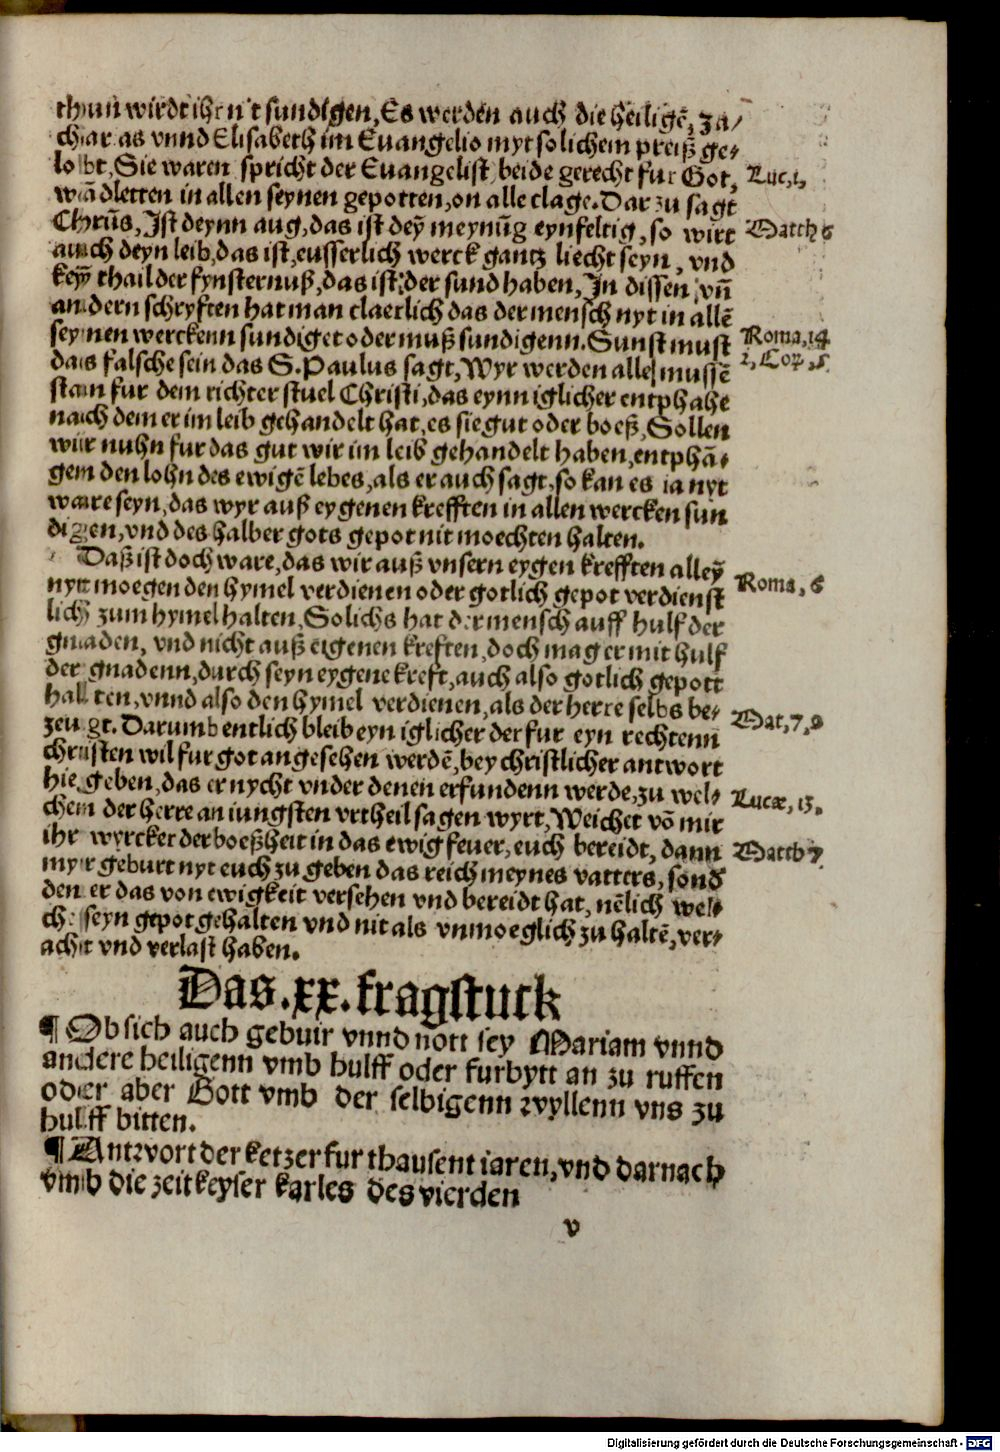 thun wirdt ihr n't sundigen, Es werden auch die heiligē, Za/
char as vnnd Elisabeth im Euangelio myt solichem preiß ge/
lobt, Sie waren spricht der Euangelist beide gerecht fur Got,
Luc, 1,
wādletten in allen seynen gepotten, on alle clage. Dar zu sagt
Chrūs, Ist deynn aug, das ist deȳ meynūg eynfeltig, so wirt
Matth 6
auch deyn leib, das ist, eusserlich werck gantz liecht seyn, vnd
keȳ thail der fynsternuß, das ist, der sund haben, In dissen vn̄
andern schryften hat man claerlich das der mensch nyt in allē
seynen werckenn sundiget oder muß sundigenn. Sunst must
Roma, 14
das falsche sein das S. Paulus sagt, Wyr werden alle mussē
2, Cor, 5,
stan fur dem richter stuel Christi, das eynn iglicher entphahe
nach dem er im leib gehandelt hat, es sie gut oder boeß, Sollen
wir nuhn fur das gut wir im leib gehandelt haben, entphā/
gem den lohn des ewigē lebes, als er auch sagt, so kan es ia nyt
ware seyn, das wyr auß eygenen krefften in allen wercken sun
digen, vnd des halber gots gepot nit moechten halten.
Daß ist doch ware, das wir auß vnsern eygen krefften alleȳ
nytt moegen den hymel verdienen oder gotlich gepot verdienst
Roma, 6
lich zum hymel halten, Solichs hat der mensch auff hulf der
gnaden, vnd nicht auß eigenen kreften, doch mag er mit hulf
der gnadenn, durch seyn eygene kreft, auch also gotlich gepott
halten, vnnd also den hymel verdienen, als der herre selbs be/
zeugt. Darumb entlich bleib eyn iglicher der fur eyn rechtenn
Mat, 7, 9
christen wil fur got angesehen werdē, bey christlicher antwort
hie geben, das er nycht vnder denen erfundenn werde, zu wel/
chem der herre an iungsten vrtheil sagen wyrt, Weichet vō mir
Lucæ, 13.
ihr wyrcker der boeßheit in das ewig feuer, euch bereidt, dann
Matth 7
myr geburt nyt euch zu geben das reich meynes vatters, sond
den er das von ewigkeit versehen vnd bereidt hat, nēlich wel/
che seyn gepot gehalten vnd nit als vnmoeglich zu haltē, ver/
acht vnd verlast haben.
Das .xx. fragstuck
¶ Ob sich auch gebuir vnnd nott sey Mariam vnnd
andere heiligenn vmb hulff oder furbytt an zu ruffen
oder aber Gott vmb der selbigenn wyllenn vns zu
hulff bitten.
¶ Antwort der ketzer fur thausent iaren, vnd darnach
vmb die zeit keyser karles des vierden
v
Digitalisierung gefördert durch die Deutsche Forschungsgemeinschaft - DFG